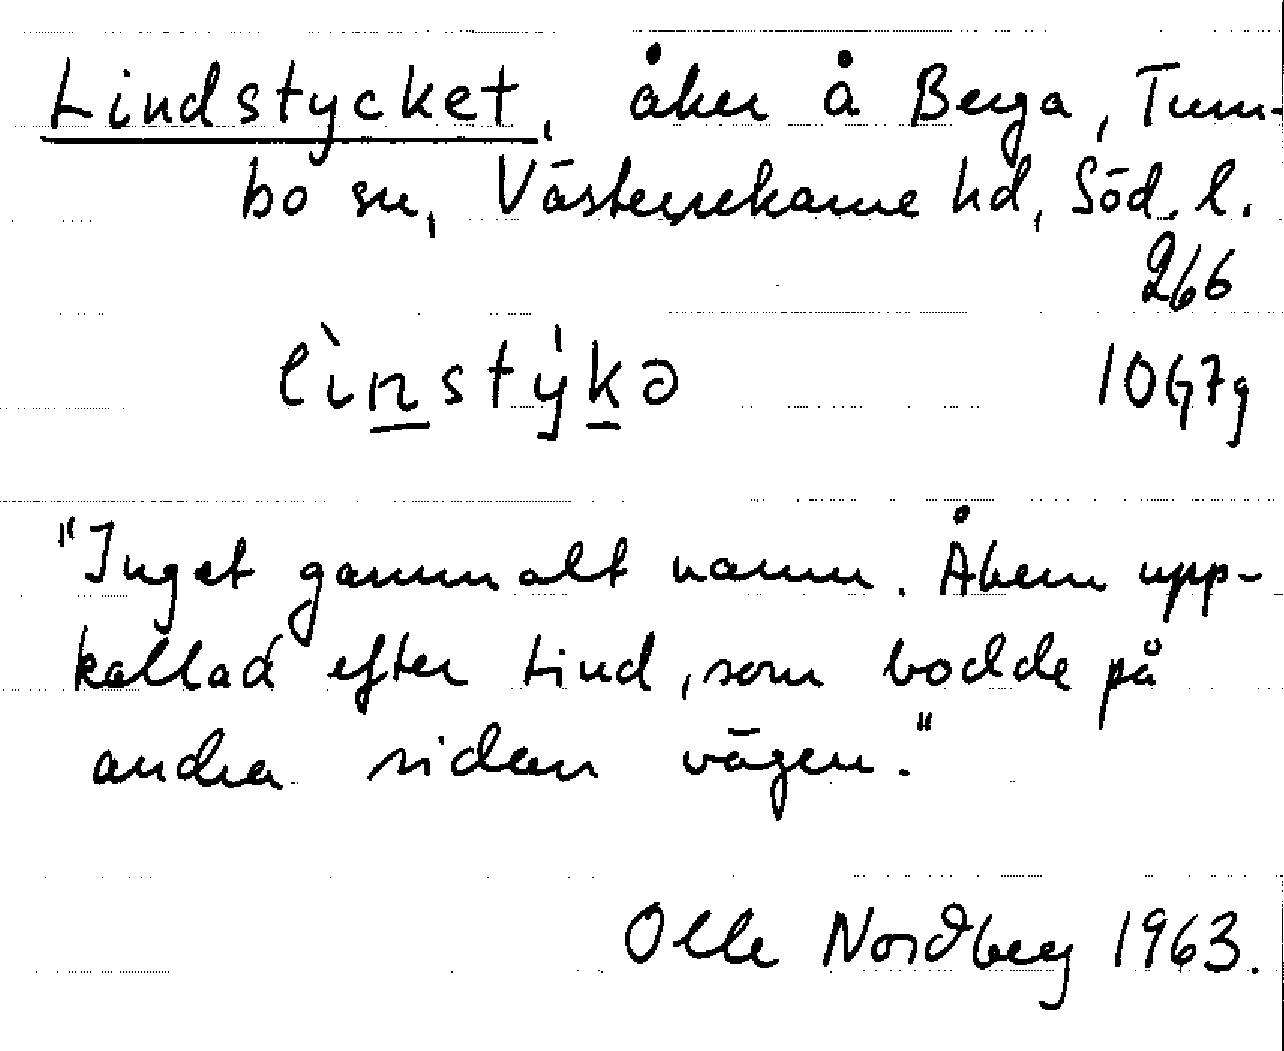 Lindstycket, åker å Berga, Tum-
bo sn, Västerrekarne hd, Söd. l.
266
lìnstýkə 10G7g
"Inget gammalt namn. Åkern upp-
kallad efter Lind, som bodde på
andra sidan vägen."
Olle Nordberg 1963.